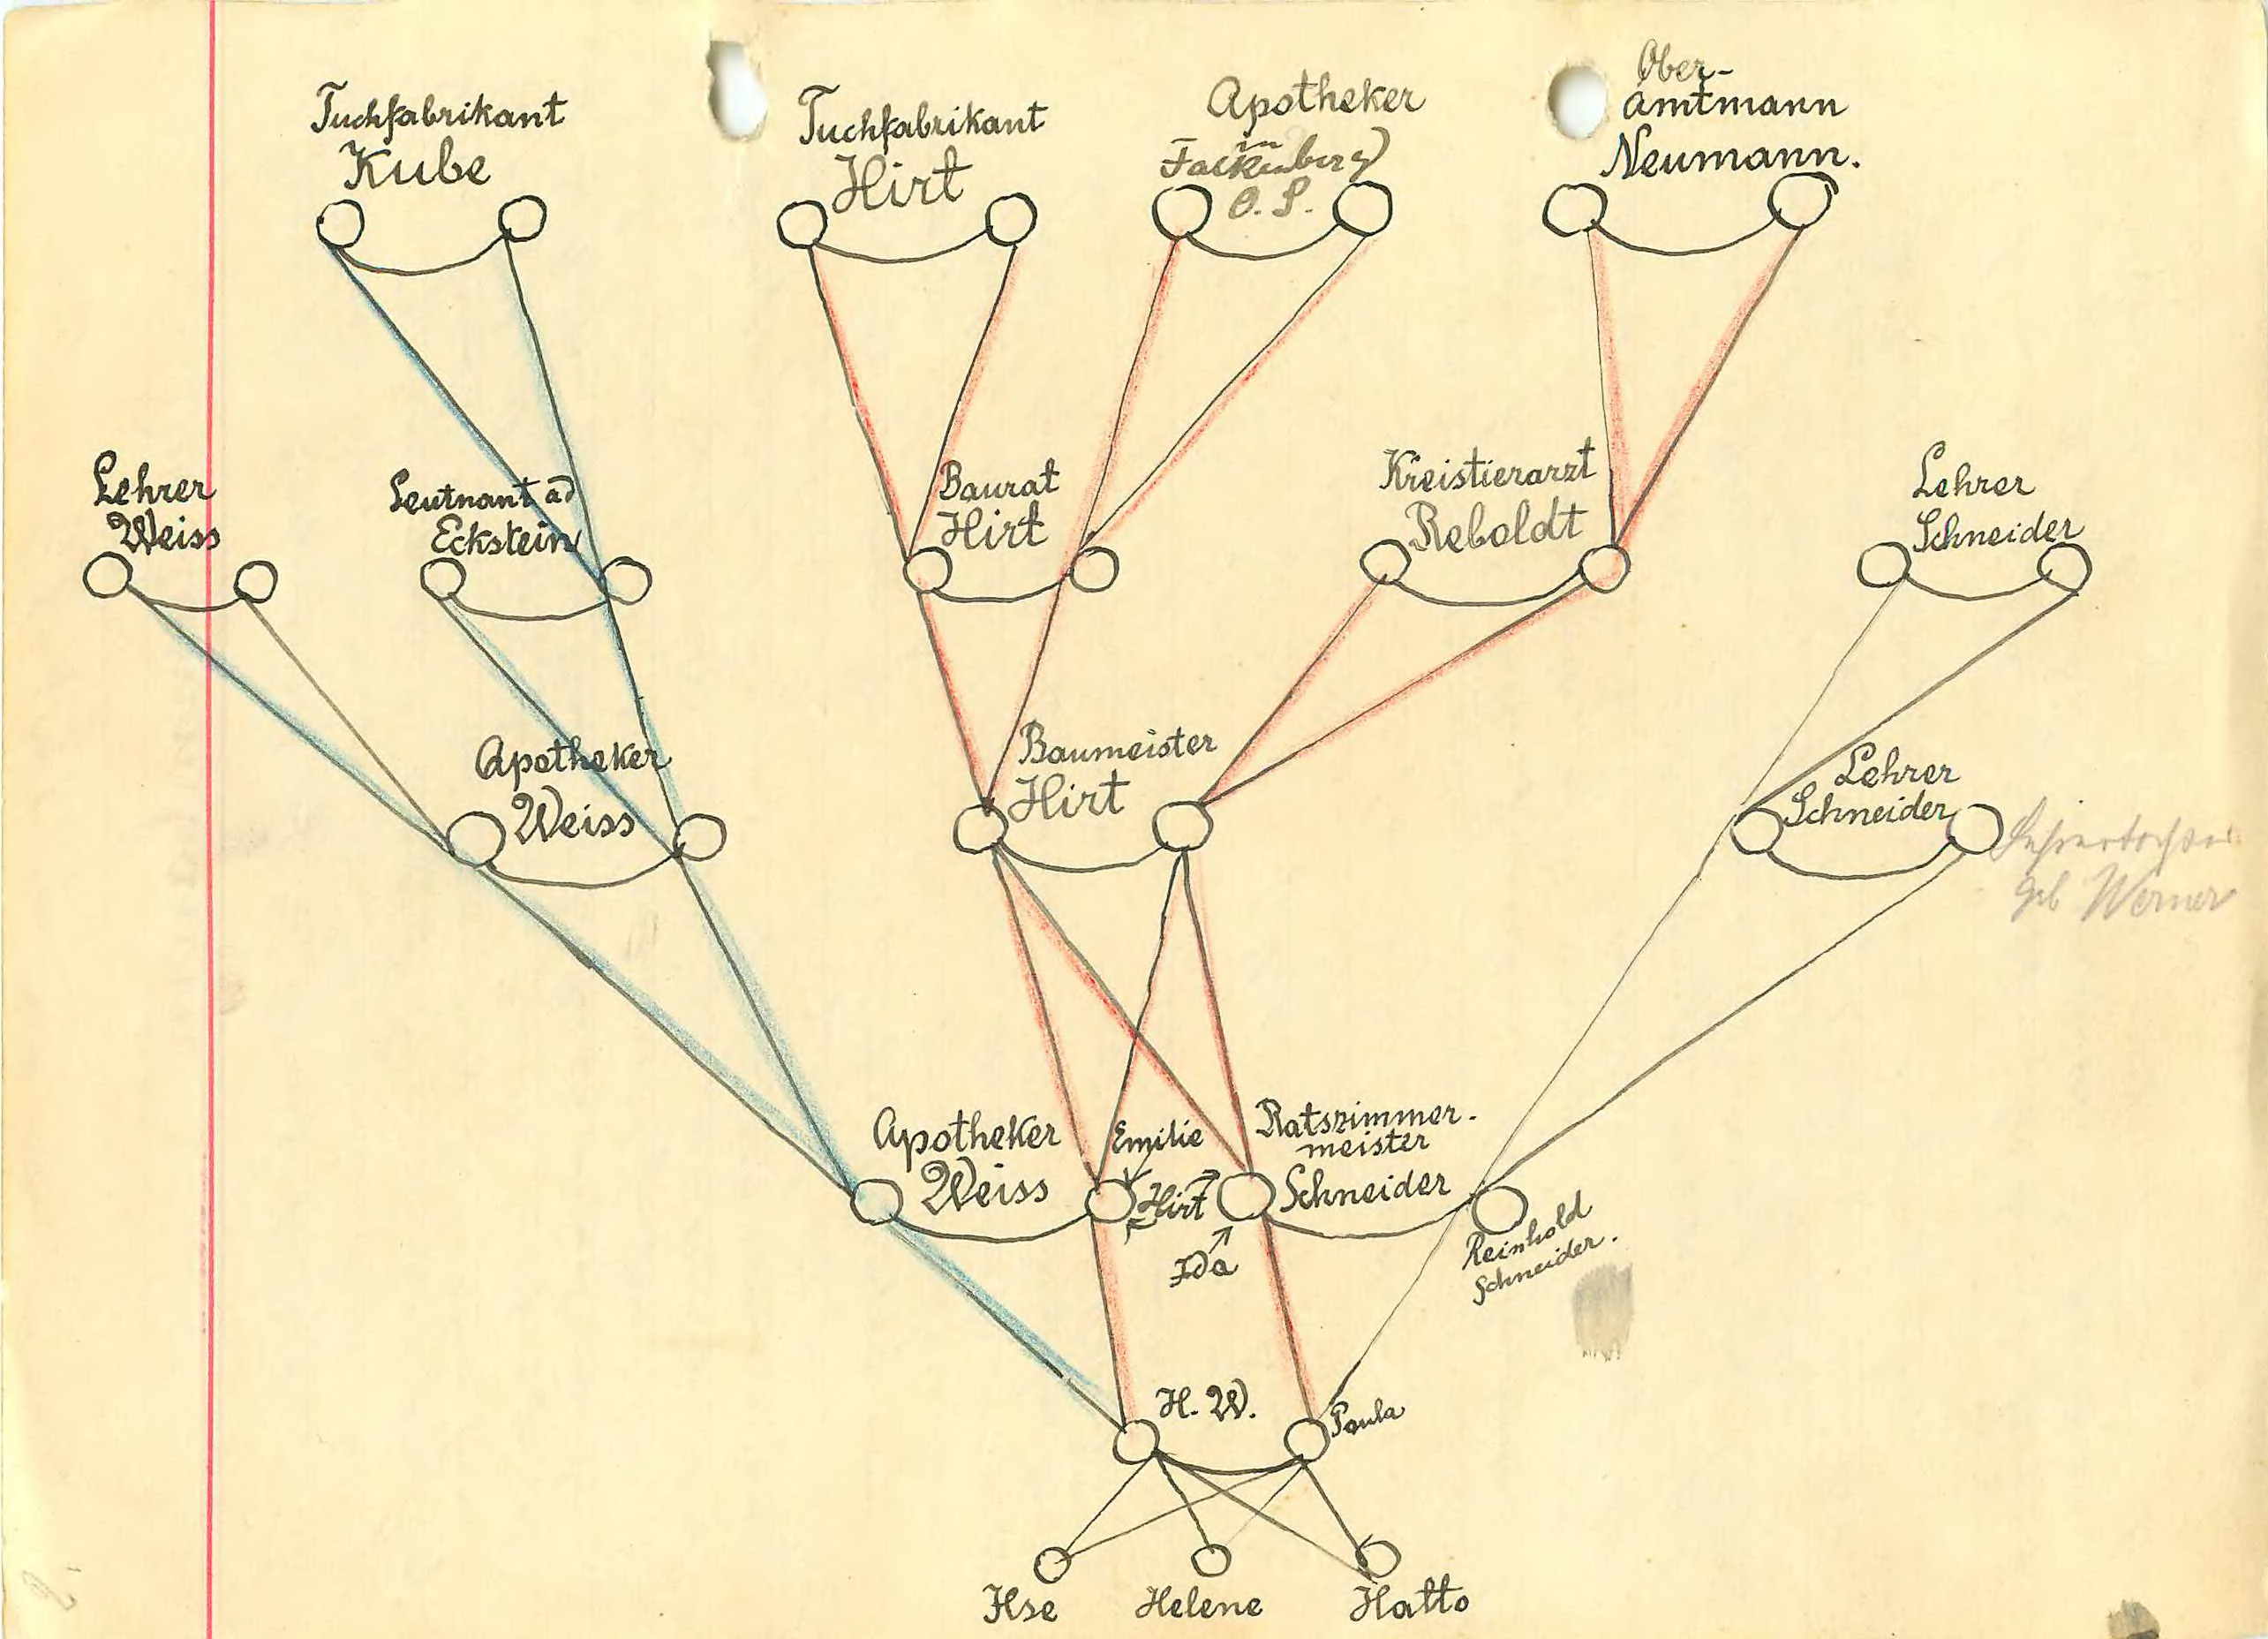 Tuchfabrikant
Kube
Tuchfabrikant
Hirt
Apotheker
in
Falkenberg
O. S.
Ober-
amtmann
Neumann.
Lehrer
Weiss
Leutnant ad
Eckstein
Baurat
Hirt
Kreistierarzt
Reboldt
Lehrer
Schneider
Apotheker
Weiss
Baumeister
Hirt
Lehrer
Schneider
geb Werner
Apotheker
Weiss
Emilie
Hirt
Ida
Ratszimmer-
meister
Schneider
Reinhold
Schneider.
H. W.
Paula
Ilse
Helene
Hatto